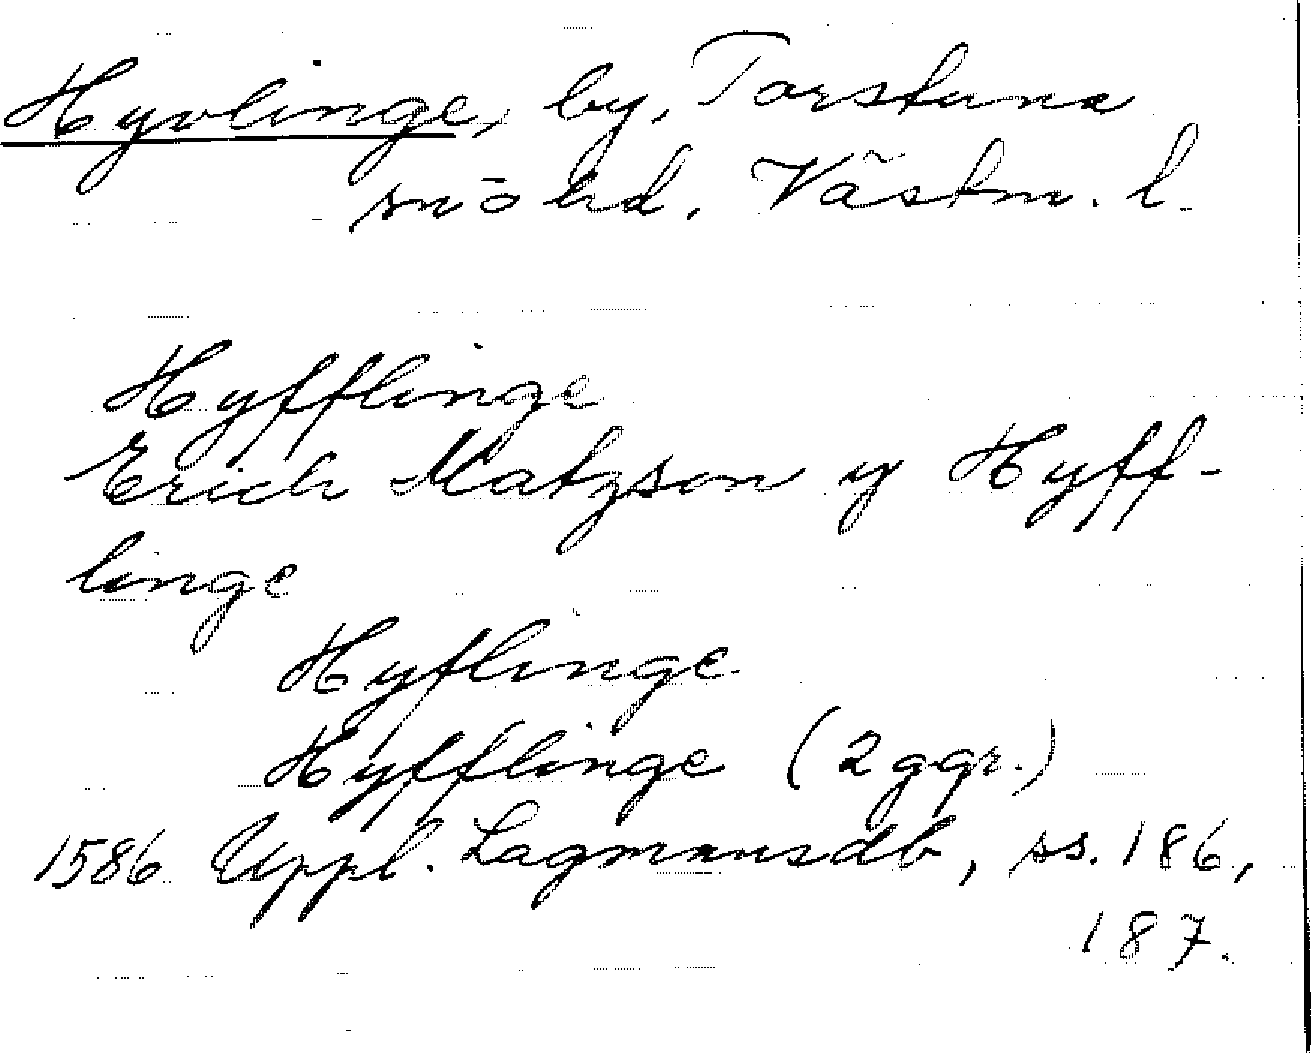 Hyvlinge, by, Torstuna
sn o hd. Västm. l.
Hyfflinge
Erich Matzson y Hyff-
linge
Hyflinge
Hyfflinge (2 ggr.)
1586 Uppl. Lagmansdb, ss. 186,
187.